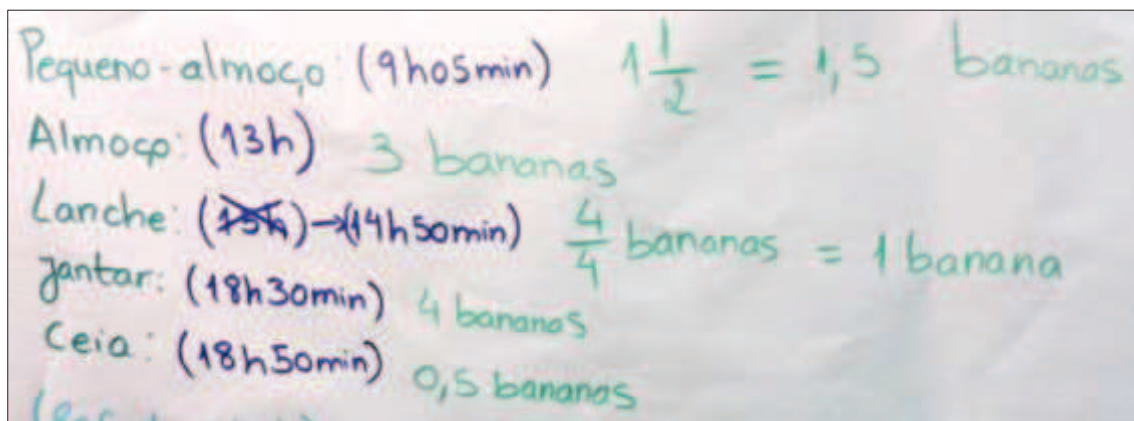 Pequeno-almoço (9h05min) 1 1/2 = 1,5 bananas
Almoço: (13h) 3 bananas
Lanche: (15h)→(14h50min) 4/4 bananas = 1 banana
Jantar: (18h30min) 4 bananas
Ceia: (18h50min) 0,5 bananas